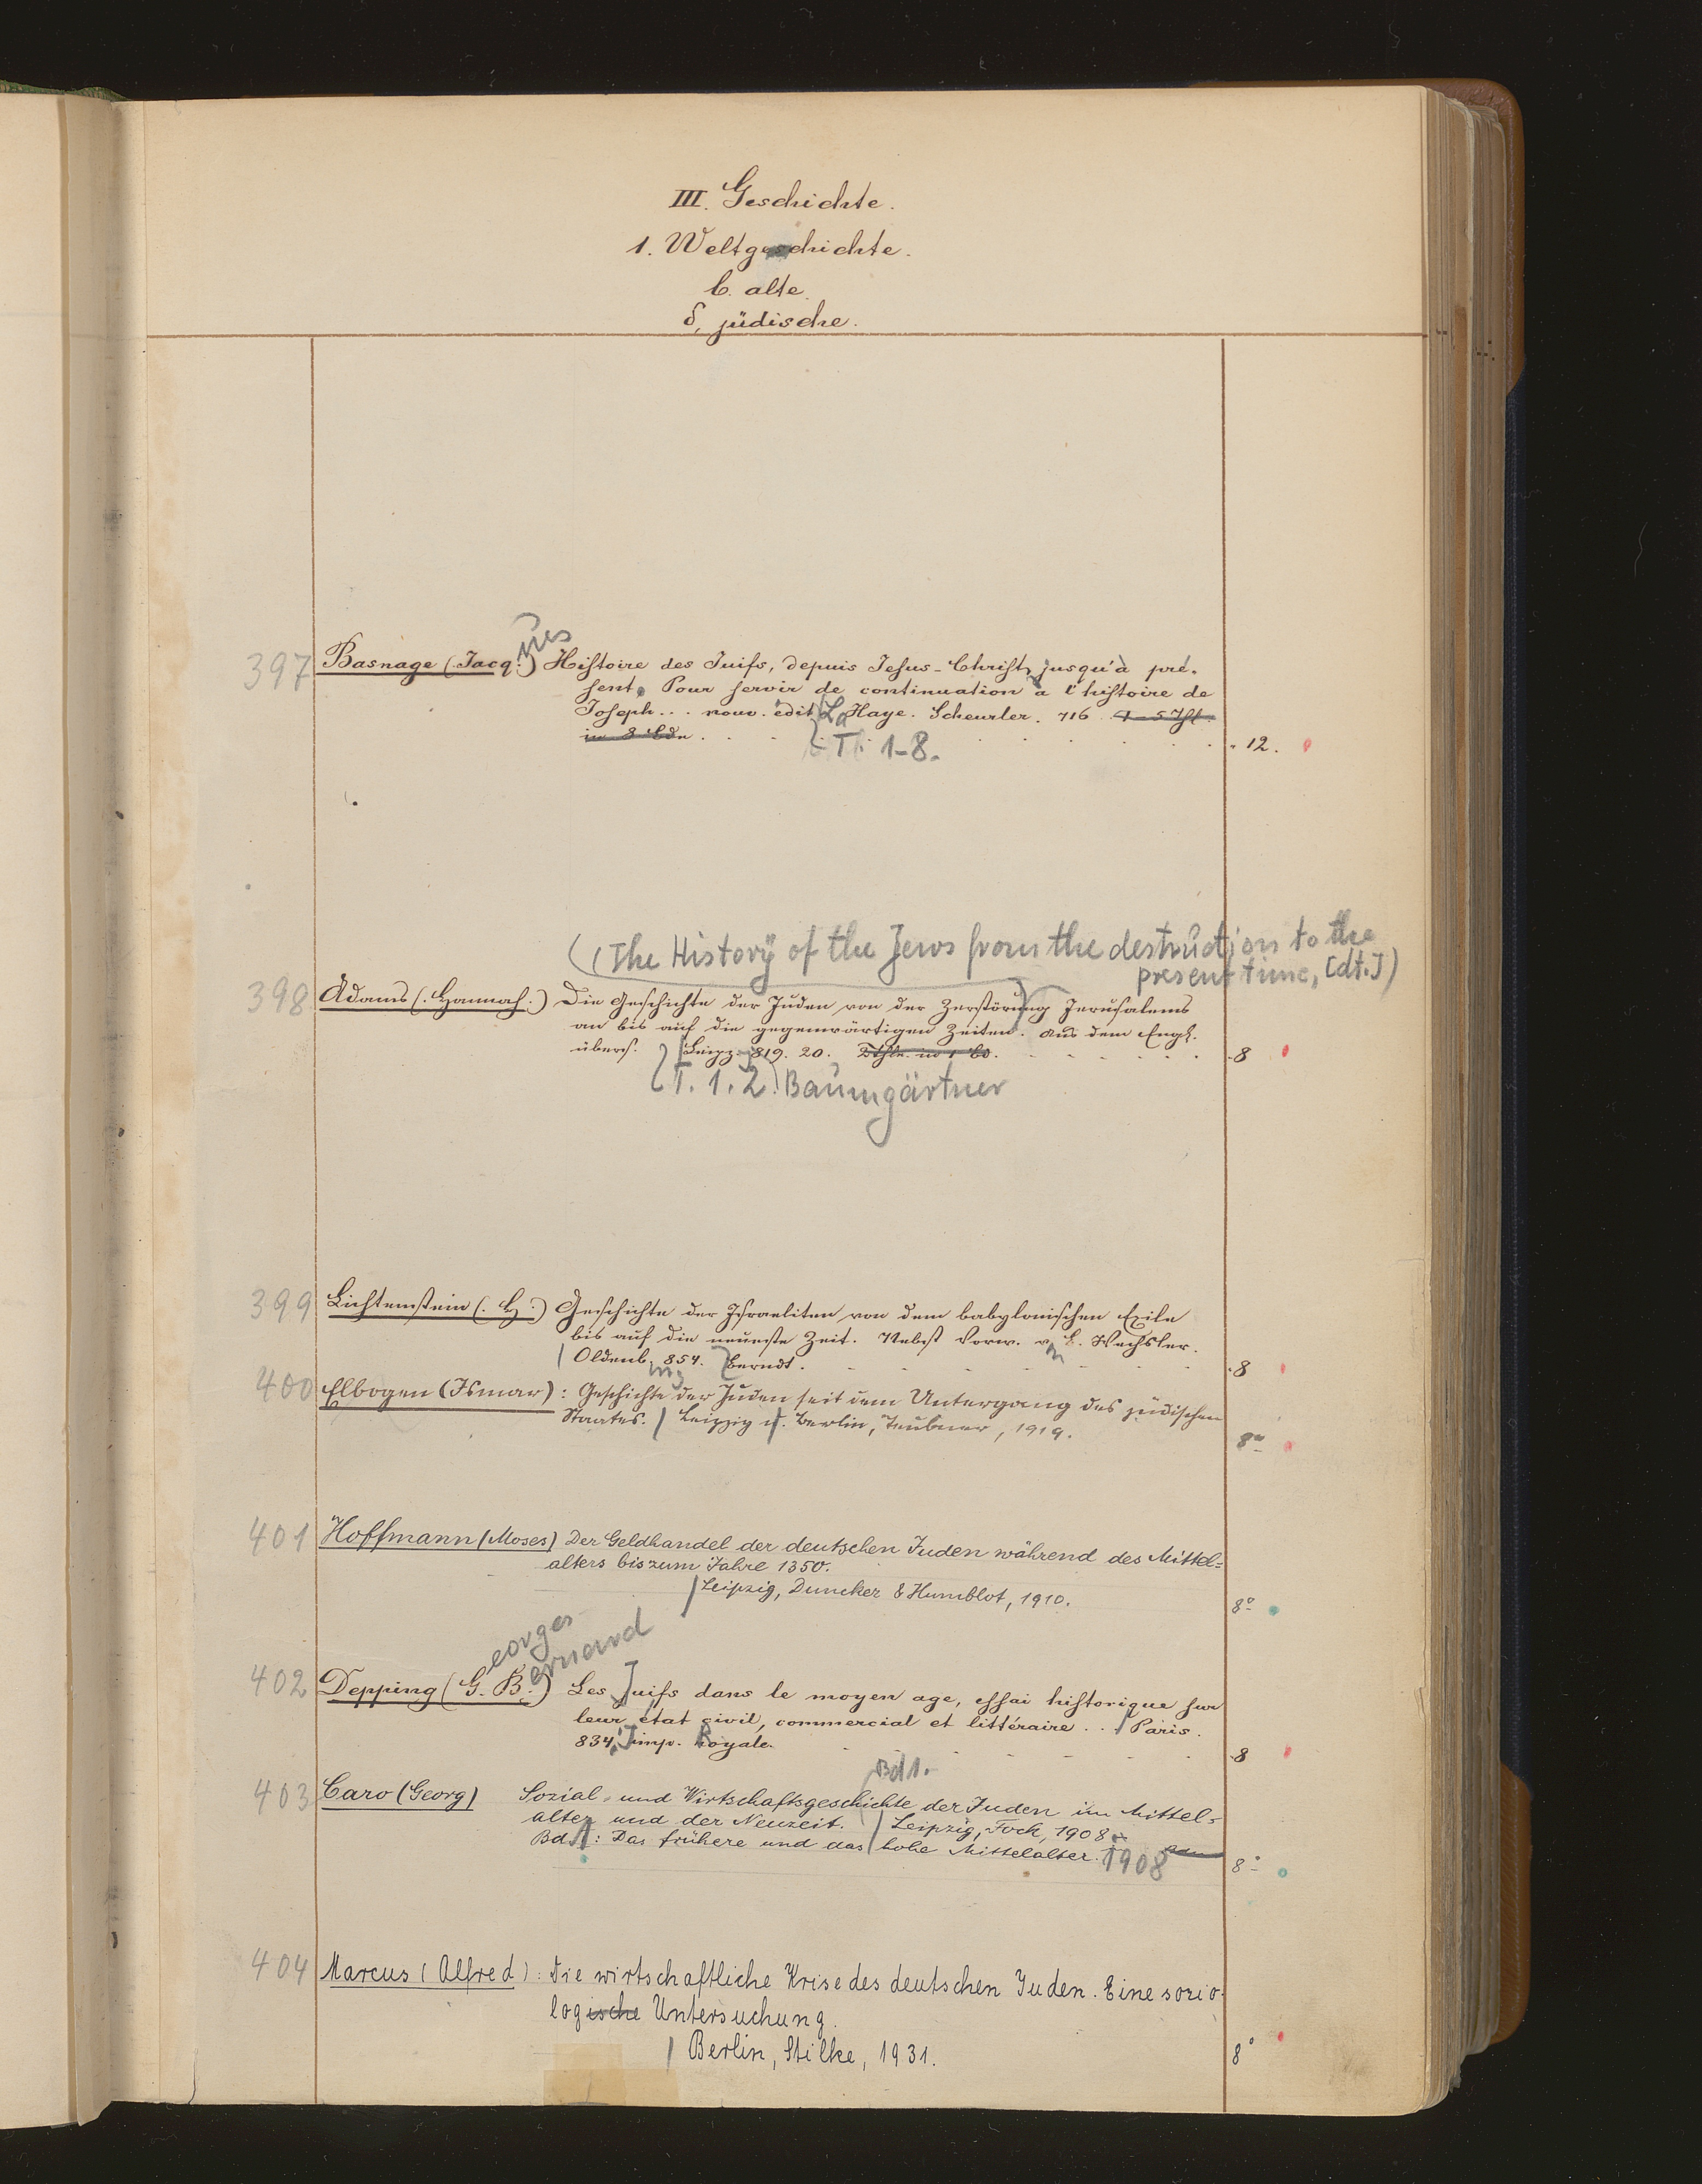 III. Geschichte.
1. Weltgeschichte.
b. alte.
δ, jüdische.
397 Basnage (Jacq.) ues Histoire des Juifs, depuis Jesus-Christ, jusqu'à pré-
sent. Pour servir de continuation à l'histoire de
Joseph... nouv. édit. La Haye. Scheurler. 716
in 8 Bdn. T. 1-8. 12.
((The History of the Jews from the destruction to the
present time, [dt.])
398 Adams (. Hannah.) Die Geschichte der Juden von der Zerstörung Jerusalems
an bis auf die gegenwärtigen Zeiten. Aus dem Engl.
übers. Leipz. 819. 20. 2 Thle. in 1 Bd. 8
(T. 1. 2.) Baumgärtner
399 Lichtenstein (. H.) Geschichte der Israeliten von dem babylonischen Exile
bis auf die neueste Zeit. Nebst Vorw. v. B. Wechsler.
Oldenb. 854. Berndt. 8
400 Elbogen (Ismar): Geschichte der Juden seit dem Untergang des jüdischen
Staates. Leipzig u. Berlin, Teubner, 1919. 8°
401 Hoffmann (Moses) Der Geldhandel der deutschen Juden während des Mittel=
alters bis zum Jahre 1350.
Leipzig, Duncker & Humblot, 1910. 8°
eorges
ernard
402 Depping (G. B.) Les Juifs dans le moyen age, essai historique sur
leur état civil, commercial et littéraire... Paris.
834, Imp. Royale. 8
Bd 1.
403 Caro (Georg) Sozial- und Wirtschaftsgeschichte der Juden im Mittel-
alter und der Neuzeit. Leipzig, Fock, 1908
Bd. 1: Das frühere und das hohe Mittelalter. 1908 8°
404 Marcus (Alfred): Die wirtschaftliche Krise des deutschen Juden. Eine sozio-
logische Untersuchung.
Berlin, Stilke, 1931. 8°